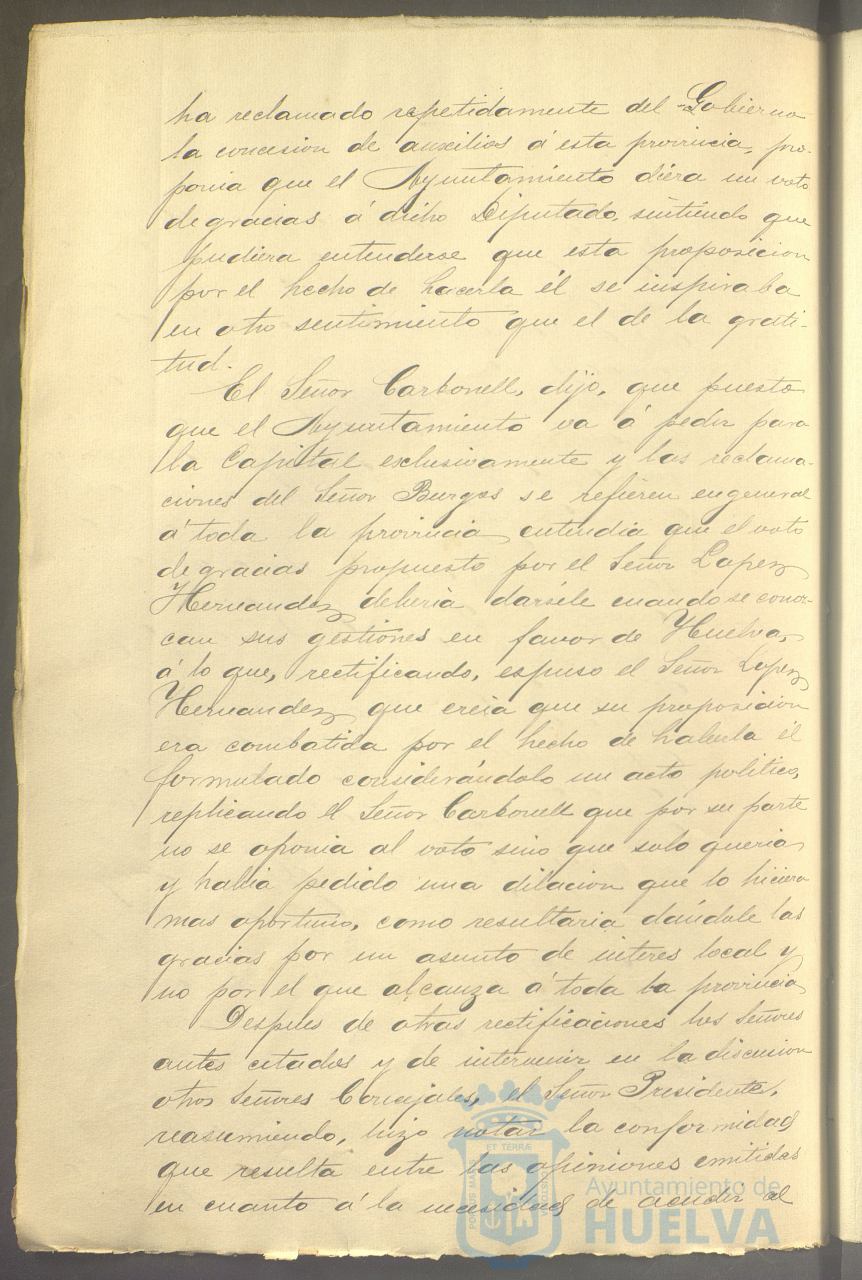 ha reclamado repetidamente del Gobierno
la concesion de auxilios á esta provincia, pro-
ponia que el Ayuntamiento diéra un voto
de gracias á dicho Diputado, sintiendo que
pudiera entenderse que esta proposicion
por el hecho de hacerla él se inspiraba
en otro sentimiento que el de la grati-
tud.
El Señor Carbonell, dijo, que puesto
que el Ayuntamiento va á pedir para
la Capital esclusivamente y las reclama-
ciones del Señor Burgos se refieren en general
á toda la provincia entendia que el voto
de gracias propuesto por el Señor Lopez
Hernandez deberia darsele cuando se conoz-
can sus gestiones en favor de Huelva,
á lo que, rectificando, espuso el Señor Lopez
Hernandez que creia que su proposicion
era combatida por el hecho de haberla él
formulado considerándolo un acto politico,
replicando el Señor Carbonell que por su parte
no se oponia al voto sino que solo queria
y habia pedido una dilacion que lo hiciera
mas oportuno, como resultaria dándole las
gracias por un asunto de interes local y
no por el que alcanza á toda la provincia
Despues de otras rectificaciones los Señores
antes citados y de intervenir en la discusion
otros Señores Concejales, el Señor Presidente,
reasumiendo, hizo notar la conformidad
que resulta entre las opiniones emitidas
en cuanto á la necesidad de acudir al
ET TERRÆ
Ayuntamiento de
HUELVA